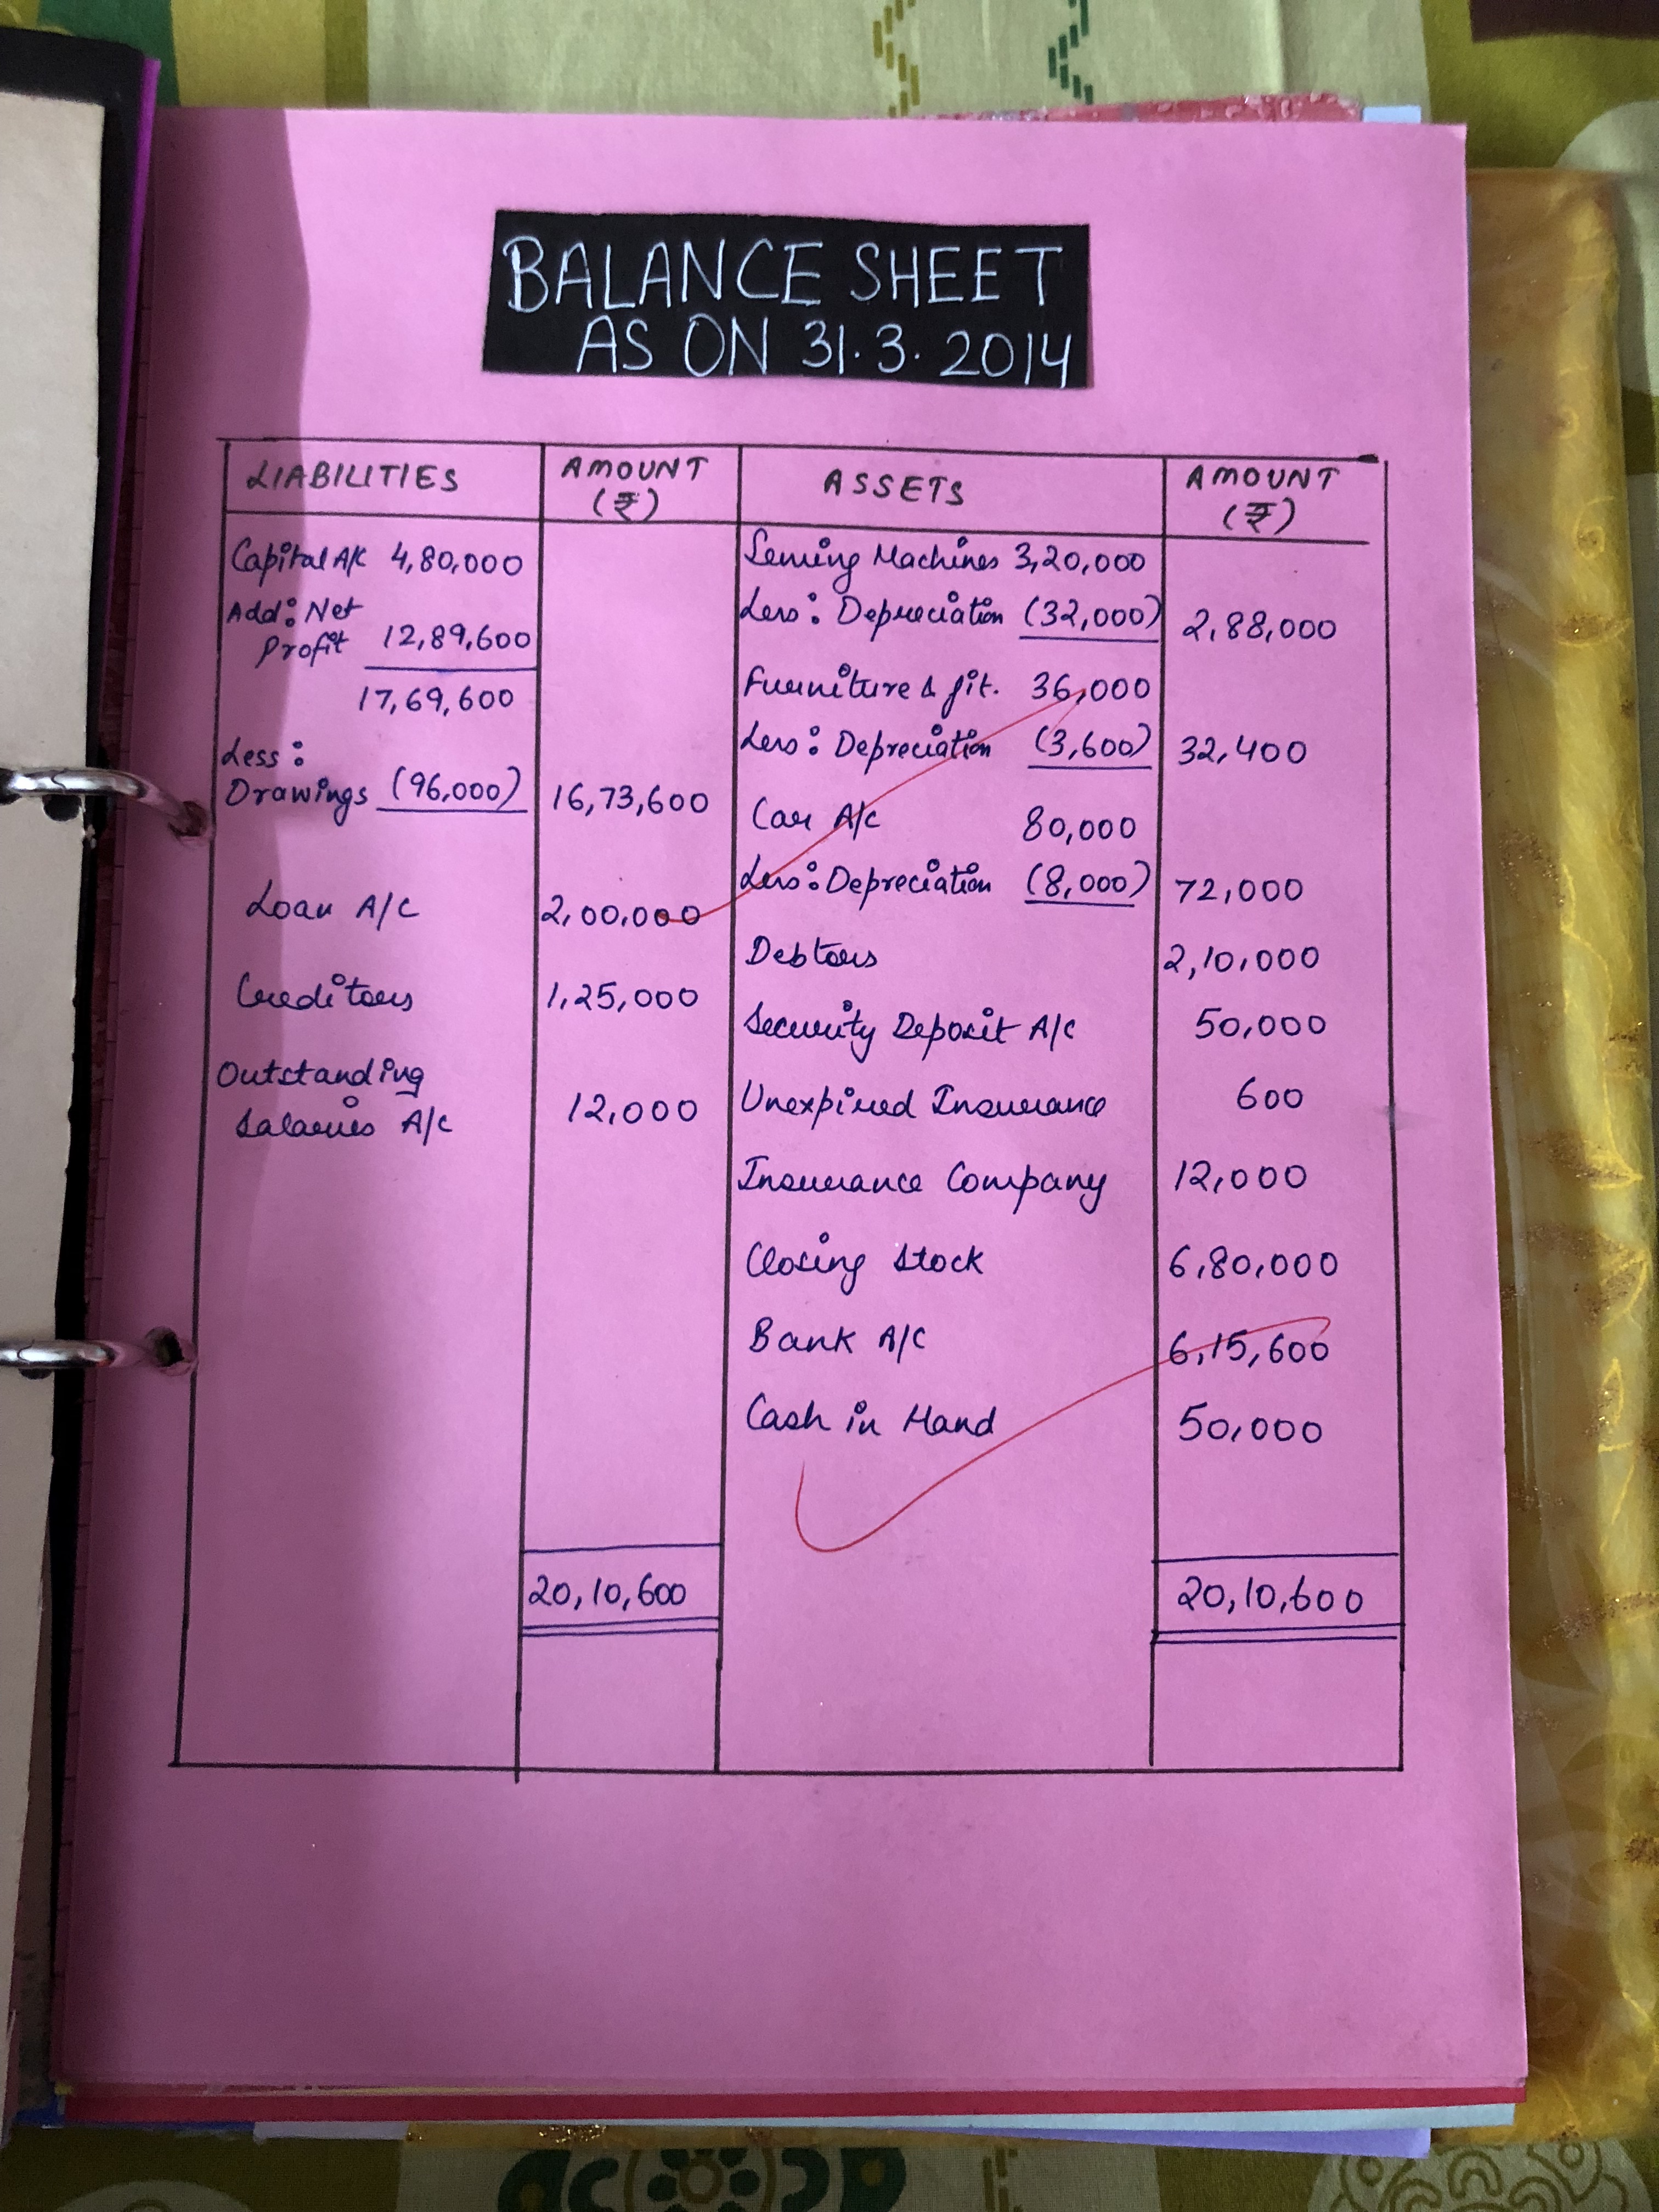 BALANCE SHEET
AS ON 31.3.2014
LIABILITIES
AMOUNT
(₹)
ASSETS
AMOUNT
(₹)
Capital A/c 4,80,000
Add: Net
Profit 12,89,600
17,69,600
Less:
Drawings (96,000) 16,73,600
Loan A/C 2,00,000
Creditors 1,25,000
Outstanding
Salaries A/c 12,000
20,10,600
Sewing Machines 3,20,000
Less: Depreciation (32,000) 2,88,000
Furniture & fit. 36,000
Less: Depreciation (3,600) 32,400
Car A/c 80,000
Less: Depreciation (8,000) 72,000
Debtors 2,10,000
Security Deposit A/c 50,000
Unexpired Insurance 600
Insurance Company 12,000
Closing Stock 6,80,000
Bank A/C 6,15,600
Cash in Hand 50,000
20,10,600